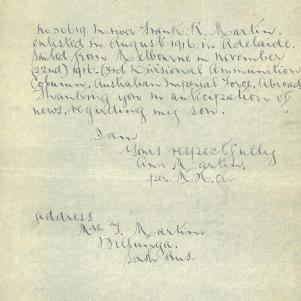 No 30619. Driver Frank. R. Martin.
enlisted in August 1916. in Adelaide.
Sailed from Melbourne in November
(22nd) 1916. (3rd Divisional Ammunition
Column, Australian Imperial Force, Abroad
Thanking you in anticipation of
news, regarding my son.
I am
Yours respectfully
Ann Martin.
per
address
Mrs. F. Martin.
Willunga.
South Aus.